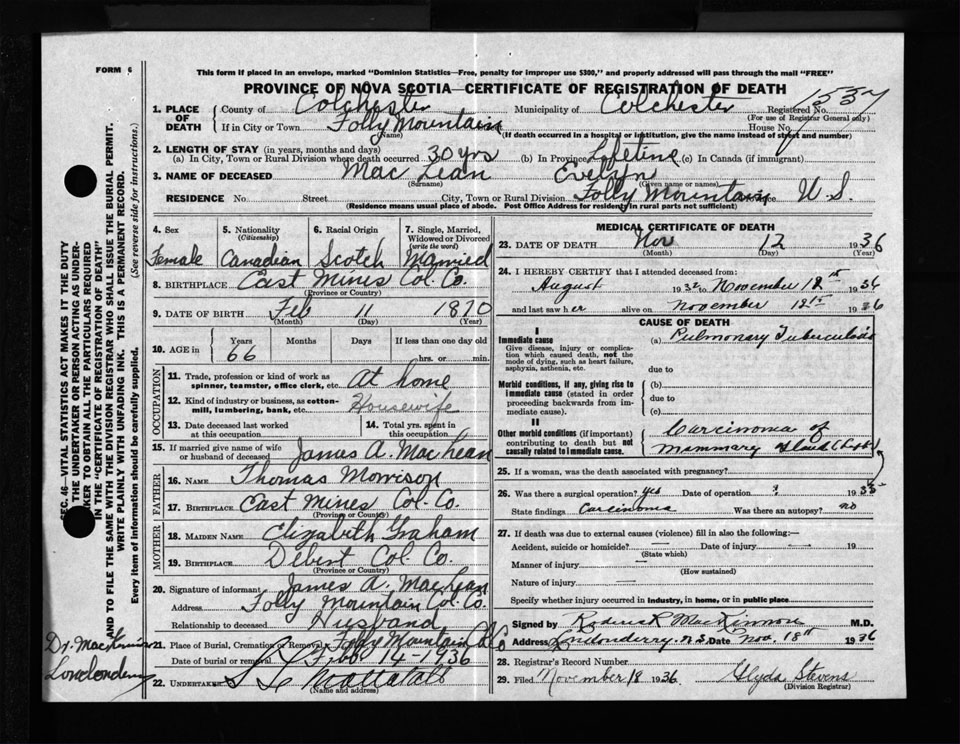 FORM 6
This form if placed in an envelope, marked "Dominion Statistics—Free, penalty for improper use $300," and properly addressed will pass through the mail "FREE"
PROVINCE OF NOVA SCOTIA—CERTIFICATE OF REGISTRATION OF DEATH
1. PLACE OF DEATH
County of Colchester Municipality of Colchester Registered No. 1537
(For use of Registrar General only)
If in City or Town Folly Mountain House No.
(Name) (If death occurred in a hospital or institution, give the name instead of street and number)
2. LENGTH OF STAY (in years, months and days)
(a) In City, Town or Rural Division where death occurred 30 yrs (b) In Province Lifetime (c) In Canada (if immigrant)
3. NAME OF DECEASED MacLean Evelyn
(Surname) (Given name or names)
RESIDENCE No. Street City, Town or Rural Division Folly Mountain N.S.
(Residence means usual place of abode. Post Office Address for residents in rural parts not sufficient)
4. Sex
Female
5. Nationality
(Citizenship)
Canadian
6. Racial Origin
Scotch
7. Single, Married, Widowed or Divorced
(write the word)
Married
8. BIRTHPLACE East Mines Col. Co.
(Province or Country)
9. DATE OF BIRTH Feb 11 1870
(Month) (Day) (Year)
10. AGE in Years Months Days If less than one day old
66 hrs. or min.
OCCUPATION
11. Trade, profession or kind of work as spinner, teamster, office clerk, etc. At home
12. Kind of industry or business, as cotton-mill, lumbering, bank, etc. Housewife
13. Date deceased last worked at this occupation
14. Total yrs. spent in this occupation
15. If married give name of wife or husband of deceased James A. MacLean
FATHER
16. Name Thomas Morrison
17. Birthplace East Mines Col. Co.
(Province or Country)
MOTHER
18. Maiden Name Elizabeth Graham
19. Birthplace Debert Col. Co.
(Province or Country)
20. Signature of informant James A. MacLean
Address Folly Mountain Col. Co.
Relationship to deceased Husband
21. Place of Burial, Cremation or Removal Folly Mountain
Date of burial or removal 14-1936
22. Undertaker
(Name and address)
MEDICAL CERTIFICATE OF DEATH
23. DATE OF DEATH Nov 12 1936
(Month) (Day) (Year)
24. I HEREBY CERTIFY that I attended deceased from:
August 1932 to November 12th 1936
and last saw her alive on November 12th 1936
CAUSE OF DEATH
I
Immediate cause
Give disease, injury or complication which caused death, not the mode of dying, such as heart failure, asphyxia, asthenia, etc.
(a) Pulmonary Tuberculosis
due to
Morbid conditions, if any, giving rise to immediate cause (stated in order proceeding backwards from immediate cause).
(b)
due to
(c)
II
Other morbid conditions (if important) contributing to death but not causally related to immediate cause.
Carcinoma of
Mammary
25. If a woman, was the death associated with pregnancy?
26. Was there a surgical operation? yes Date of operation ? 1933
State findings Carcinoma Was there an autopsy? no
27. If death was due to external causes (violence) fill in also the following:—
Accident, suicide or homicide? — Date of injury — 19
(State which)
Manner of injury —
(How sustained)
Nature of injury —
Specify whether injury occurred in industry, in home, or in public place
Signed by Roderick MacKinnon M.D.
Address Londonderry, N.S. Date Nov. 18th 1936
28. Registrar's Record Number
29. Filed November 18 1936 Glyda Stevens
(Division Registrar)
SEC. 46—VITAL STATISTICS ACT MAKES IT THE DUTY
THE UNDERTAKER OR PERSON ACTING AS UNDER-
KER TO OBTAIN ALL THE PARTICULARS REQUIRED
IN THE "CERTIFICATE OF REGISTRATION OF DEATH"
AND TO FILE THE SAME WITH THE DIVISION REGISTRAR WHO SHALL ISSUE THE BURIAL PERMIT.
WRITE PLAINLY WITH UNFADING INK. THIS IS A PERMANENT RECORD.
Every item of information should be carefully supplied. (See reverse side for instructions.)
Dr. MacKinnon
Londonderry